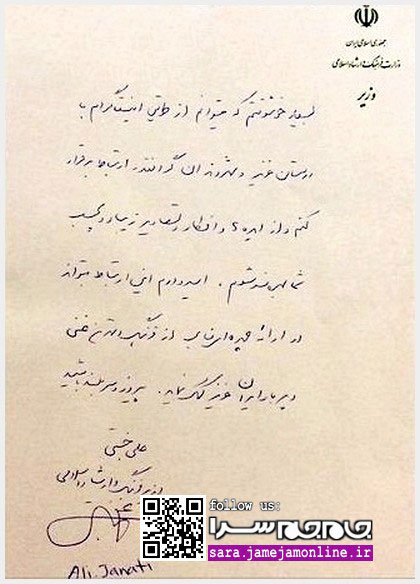 جمهوری اسلامی ایران
وزارت فرهنگ و ارشاد اسلامی
وزیر
بسیار خوشوقتم که میتوانم از طریق اینستاگرام با
دوستان عزیز و شهروندان گرانقدر ارتباط برقرار
کنم و از ایده ها و افکار و تصاویر زیبا و دلچسب
شما بهره مند شوم. امیدوارم این ارتباط بتواند
در ارائه چهره ای جذاب از فرهنگ و تمدن غنی
و پربار ایران عزیز کمک نماید. پیروز و سربلند باشید
علی جنتی
وزیر فرهنگ و ارشاد اسلامی
Ali. Janati
follow us:
جام جم سرا
sara.jamejamonline.ir